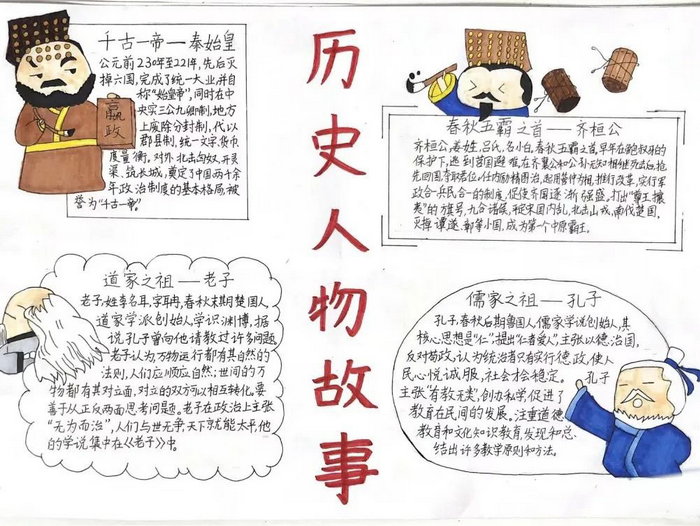 历史人物故事
千古一帝—秦始皇
公元前230年至221年,先后灭
掉六国,完成了统一大业,并自
称"始皇帝",同时在中
央实三公九卿制,地方
上废除分封制,代以
郡县制,统一文字,货币
度量衡。对外北击匈奴,
渠,筑长城,奠定了中国两千余
年政治制度的基本格局,被
誉为"千古一帝"。
嬴政
春秋五霸之首—齐桓公
齐桓公,姜姓,吕氏,名小白,春秋五霸之首,早年在鲍叔牙的
保护下,逃到莒国避难,在齐襄公和公孙无知相继死去后,抢
先回国,夺取君位,任内励精图治,起用管仲为相,推行改革,实行军
政合一兵民合一的制度,促使齐国逐渐强盛。打出"尊王攘
夷"的旗号,九合诸侯,平定宋国内乱,北击山戎,南伐楚国,
灭掉谭遂、鄣等小国,成为第一个中原霸王。
道家之祖—老子
老子,姓李名耳,字聃,春秋末期楚国人,
道家学派创始人,学识渊博,据
说孔子曾向他请教过许多问题
老子认为万物运行都有其自然的
法则,人们应顺应自然;世间的万
物都有其对立面,对立的双方可以相互转化,要
善于从正反两面思考问题。老子在政治上主张
"无为而治",人们与世无争天下就能太平,他
的学说集中在《老子》中。
儒家之祖—孔子
孔子,春秋后期鲁国人,儒家学说创始人,其
核心思想是"仁",提出"仁者爱人",主张以德治国,
反对苛政,认为统治者只有实行德政,使人
民心悦诚服,社会才会稳定。
主张"有教无类",创办私学,促进了
教育在民间的发展。注重道德
教育和文化知识教育,发现和总
结出许多教学原则和方法。
孔子